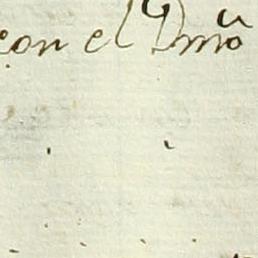 con el Dmo